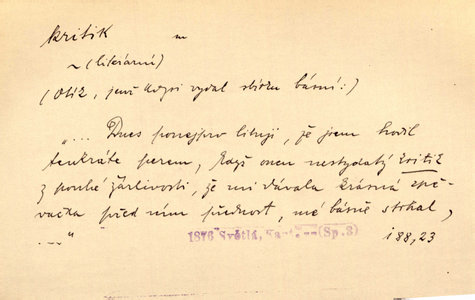 kritik m
~ (literární)
(Otík, jenž kdysi vydal sbírku básní:)
"... Dnes ponejprv lituji, že jsem hodil
tenkráte perem, když onen nestydatý kritik
z pouhé žárlivosti, že mi dávala krásná zpě-
vačka před ním přednost, mé básně strhal,
..."
1876 Světlá, (Sp.3)
i 88,23